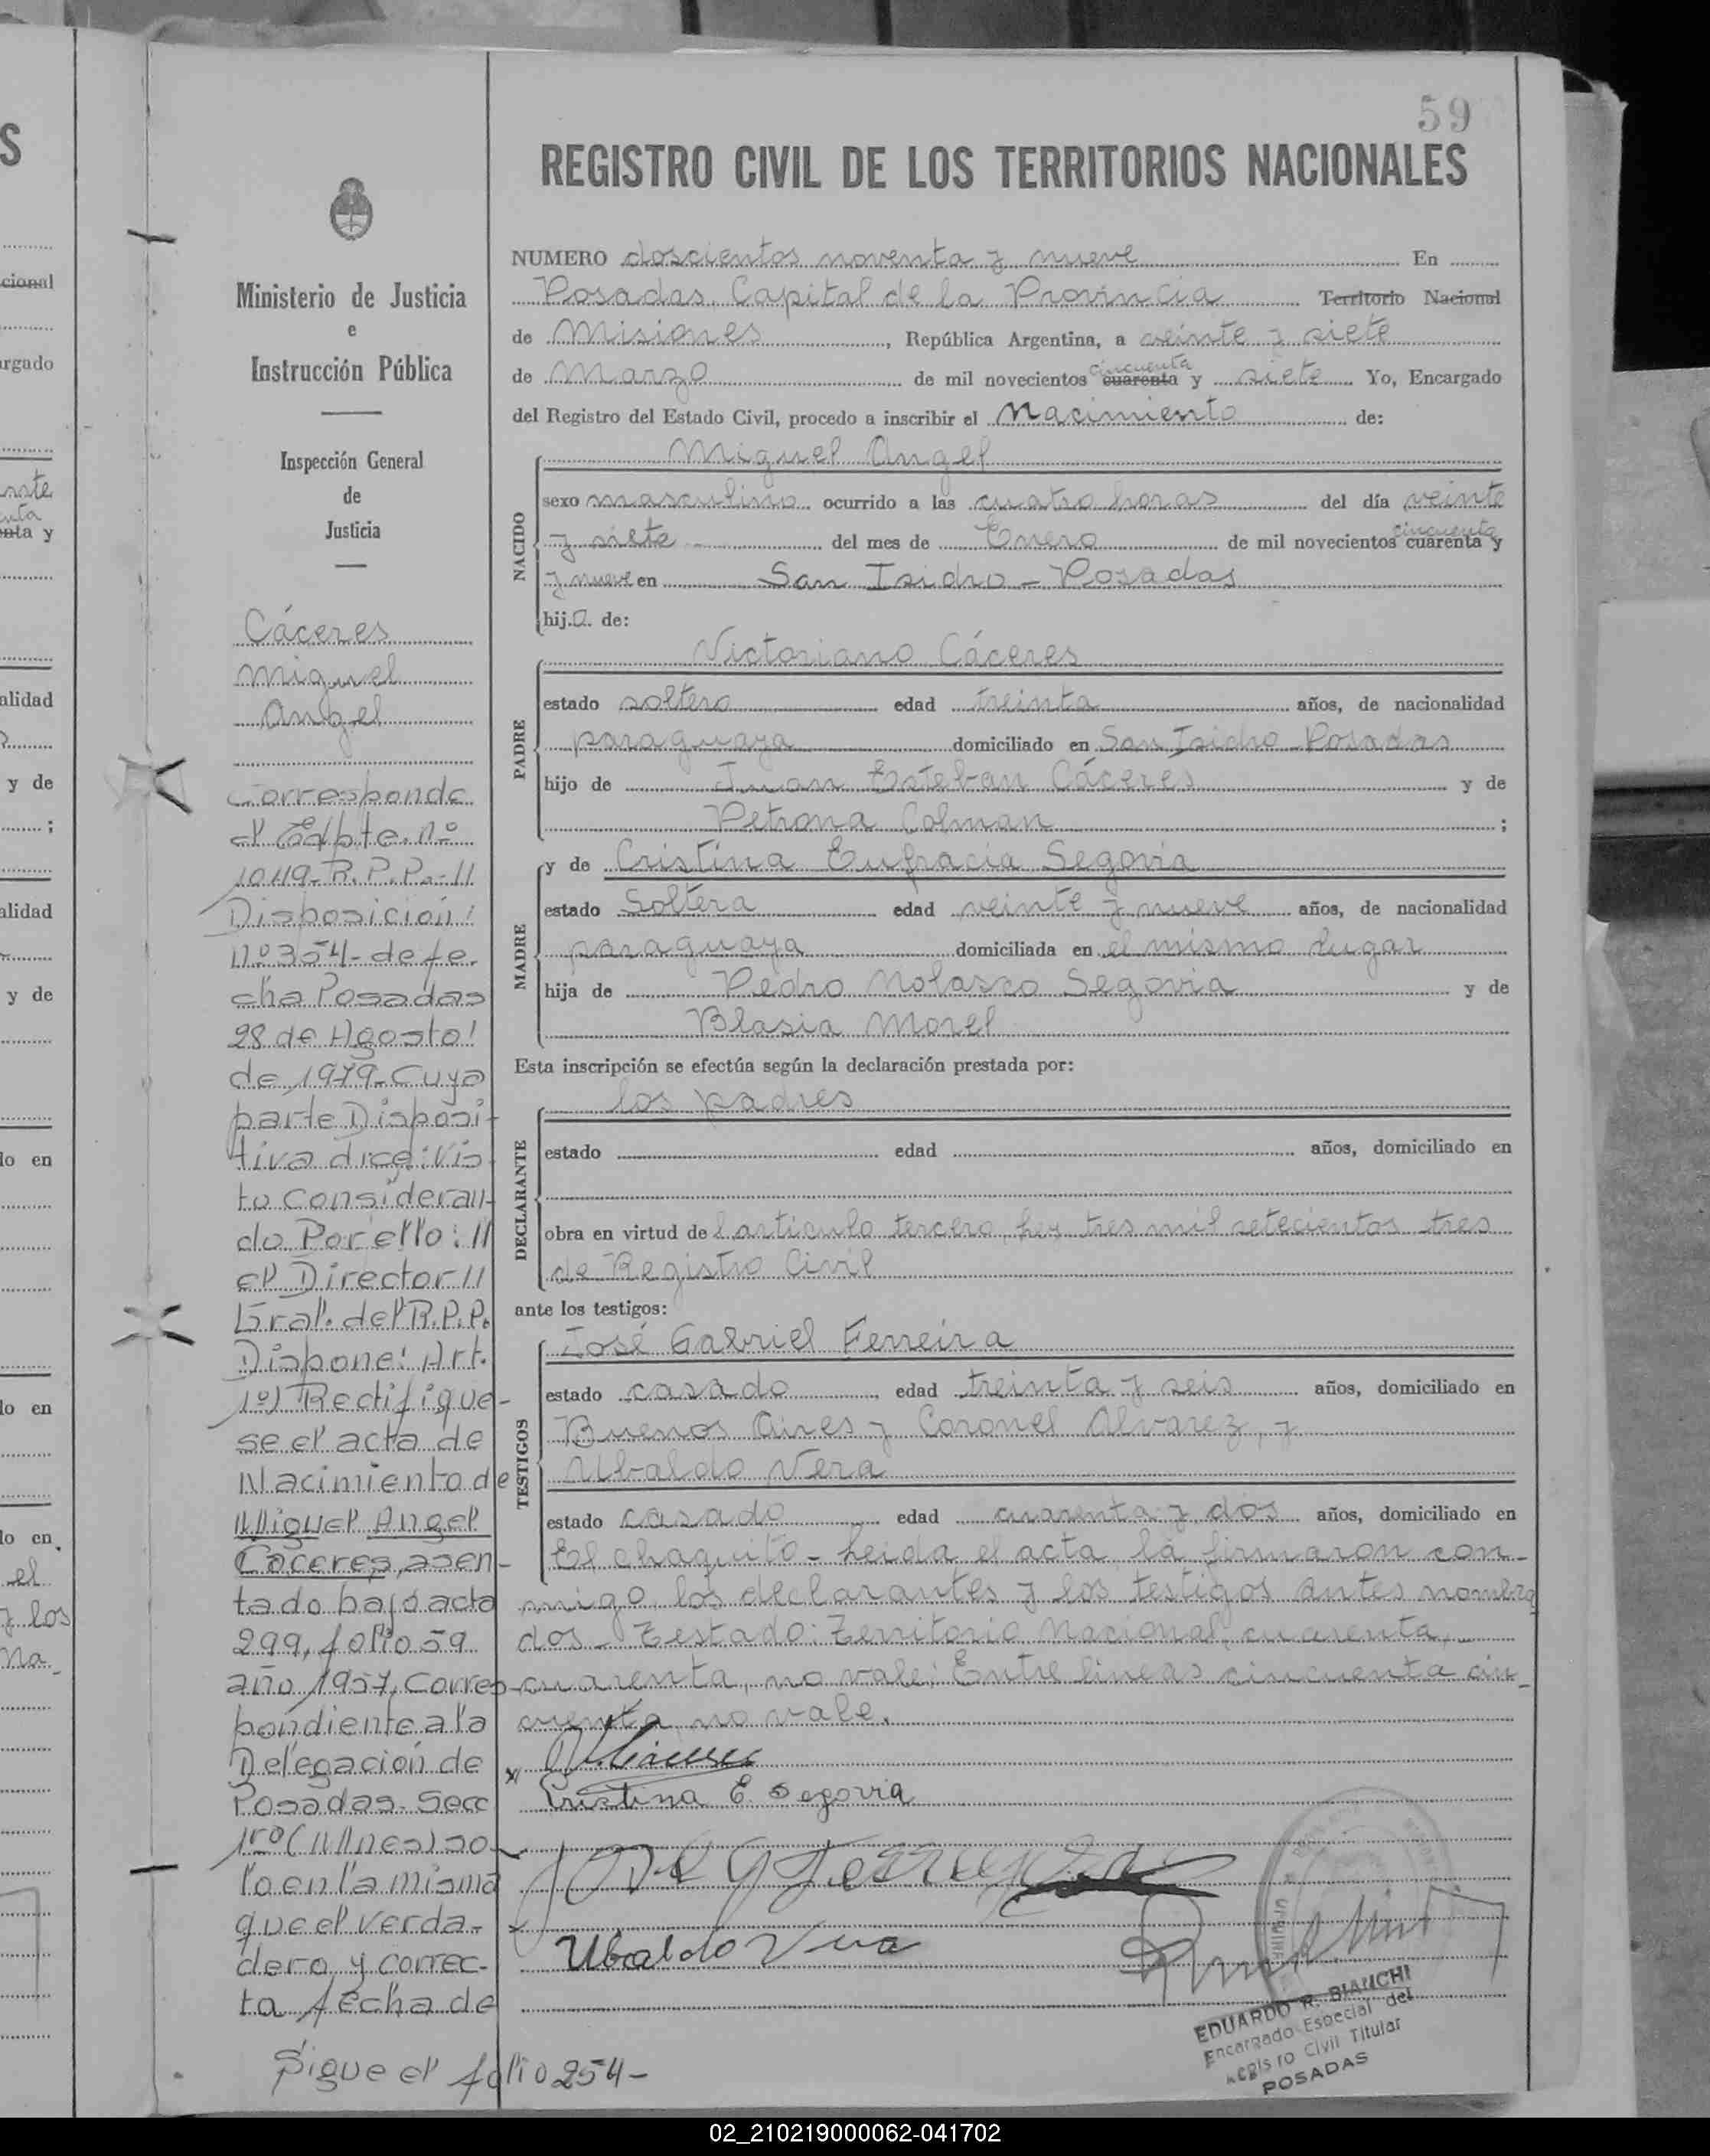 59
REGISTRO CIVIL DE LOS TERRITORIOS NACIONALES
Ministerio de Justicia
e
Instrucción Pública
Inspección General
de
Justicia
Cáceres
Miguel
Angel
Corresponde
al Expte. Nº
1049-R.P.P.-11
Disposición
Nº 354- de fe-
cha Posadas
28 de Agosto
de 1979- Cuya
parte Disposi-
tiva dice: Vis-
to Consideran-
do Por ello: 11
el Director 11
Gral. del R.P.P.
Dispone: Art.
1º) Rectifique-
se el acta de
Nacimiento de
Miguel Angel
Caceres, asen-
tado bajo acta
299, folio 59
año 1957, Corres-
pondiente a la
Delegación de
Posadas- Secc
1ro (Mnes) so-
lo en la misma
que el verda-
dero y correc-
ta fecha de
Sigue el folio 254-
NUMERO doscientos noventa y nueve En
Posadas Capital de la Provincia Territorio Nacional
de Misiones, República Argentina, a veinte y siete
de Marzo de mil novecientos cuarenta cincuenta y siete Yo, Encargado
del Registro del Estado Civil, procedo a inscribir el Nacimiento de:
NACIDO
Miguel Angel
sexo masculino ocurrido a las cuatro horas del día veinte
y siete del mes de Enero de mil novecientos cuarenta cincuenta y
y nueve en San Isidro - Posadas
hijo de:
PADRE
Victoriano Cáceres
estado soltero edad treinta años, de nacionalidad
paraguaya domiciliado en San Isidro Posadas
hijo de Juan Esteban Cáceres y de
Petrona Colman ;
MADRE
y de Cristina Eufracia Segovia
estado Soltera edad veinte y nueve años, de nacionalidad
paraguaya domiciliada en el mismo lugar
hija de Pedro Nolasco Segovia y de
Blasia Morel
Esta inscripción se efectúa según la declaración prestada por:
DECLARANTE
los padres
estado edad años, domiciliado en
obra en virtud del artículo tercero, ley tres mil setecientos tres
de Registro Civil
ante los testigos:
TESTIGOS
José Gabriel Ferreira
estado casado edad treinta y seis años, domiciliado en
Buenos Aires y Coronel Alvarez, y
Ubaldo Vera
estado casado edad cuarenta y dos años, domiciliado en
El chaquito - Leida el acta la firmaron con-
migo los declarantes y los testigos antes nombra
dos - Testado: Territorio Nacional, cuarenta,
cuarenta, no vale: Entre lineas cincuenta cin-
cuenta no vale.
Cristina E Segovia
Ubaldo Vera
EDUARDO R. BIANCHI
Encargado Especial del
Registro Civil Titular
POSADAS
cional
argado
enta y
alidad
y de
;
alidad
y de
lo en
lo en
lo en
el
y los
02_210219000062-041702